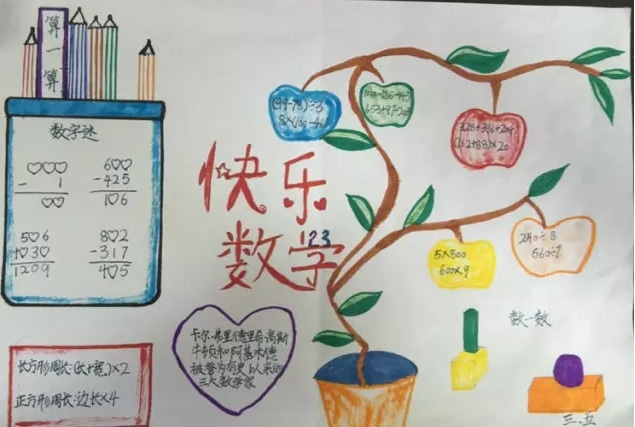 算一算
数字迷
♡♡♡
- 1
♡♡
6♡♡
-425
1♡6
5♡6
+♡3♡
1209
8♡2
-317
4♡5
快乐
数学
123
6×(130-
653+97-
328+346+204
(112+88)×20
5×800
600×9
240÷8
560÷7
数一数
卡尔·弗里德里希·高斯
牛顿和阿基米德
被誉为有史以来的
三大数学家
长方形周长:(长+宽)×2
正方形周长:边长×4
三.五